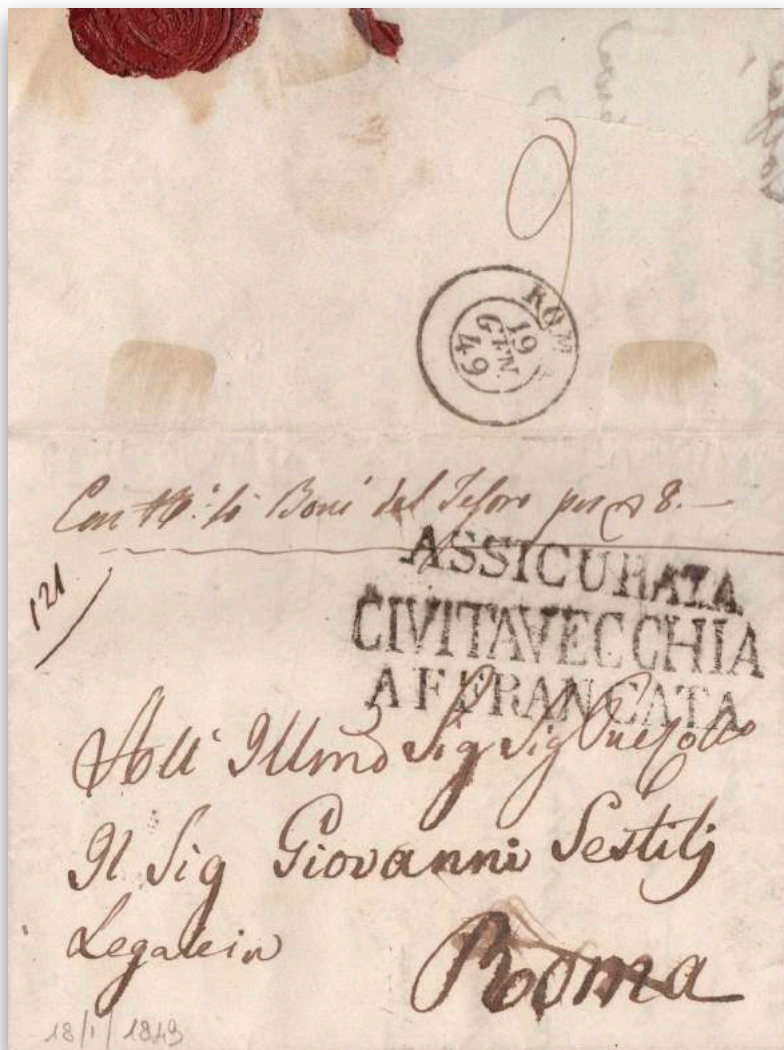 ROMA
19
GEN
49
Con Boni del Tesoro per 8.—
121
ASSICURATA
CIVITAVECCHIA
AFFRANCATA
All' Illmo Sig Sig
Il Sig Giovanni Sestilj
Roma
18/1/1849